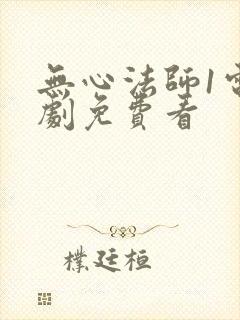 無心法師1電
劇免費看
樸廷桓